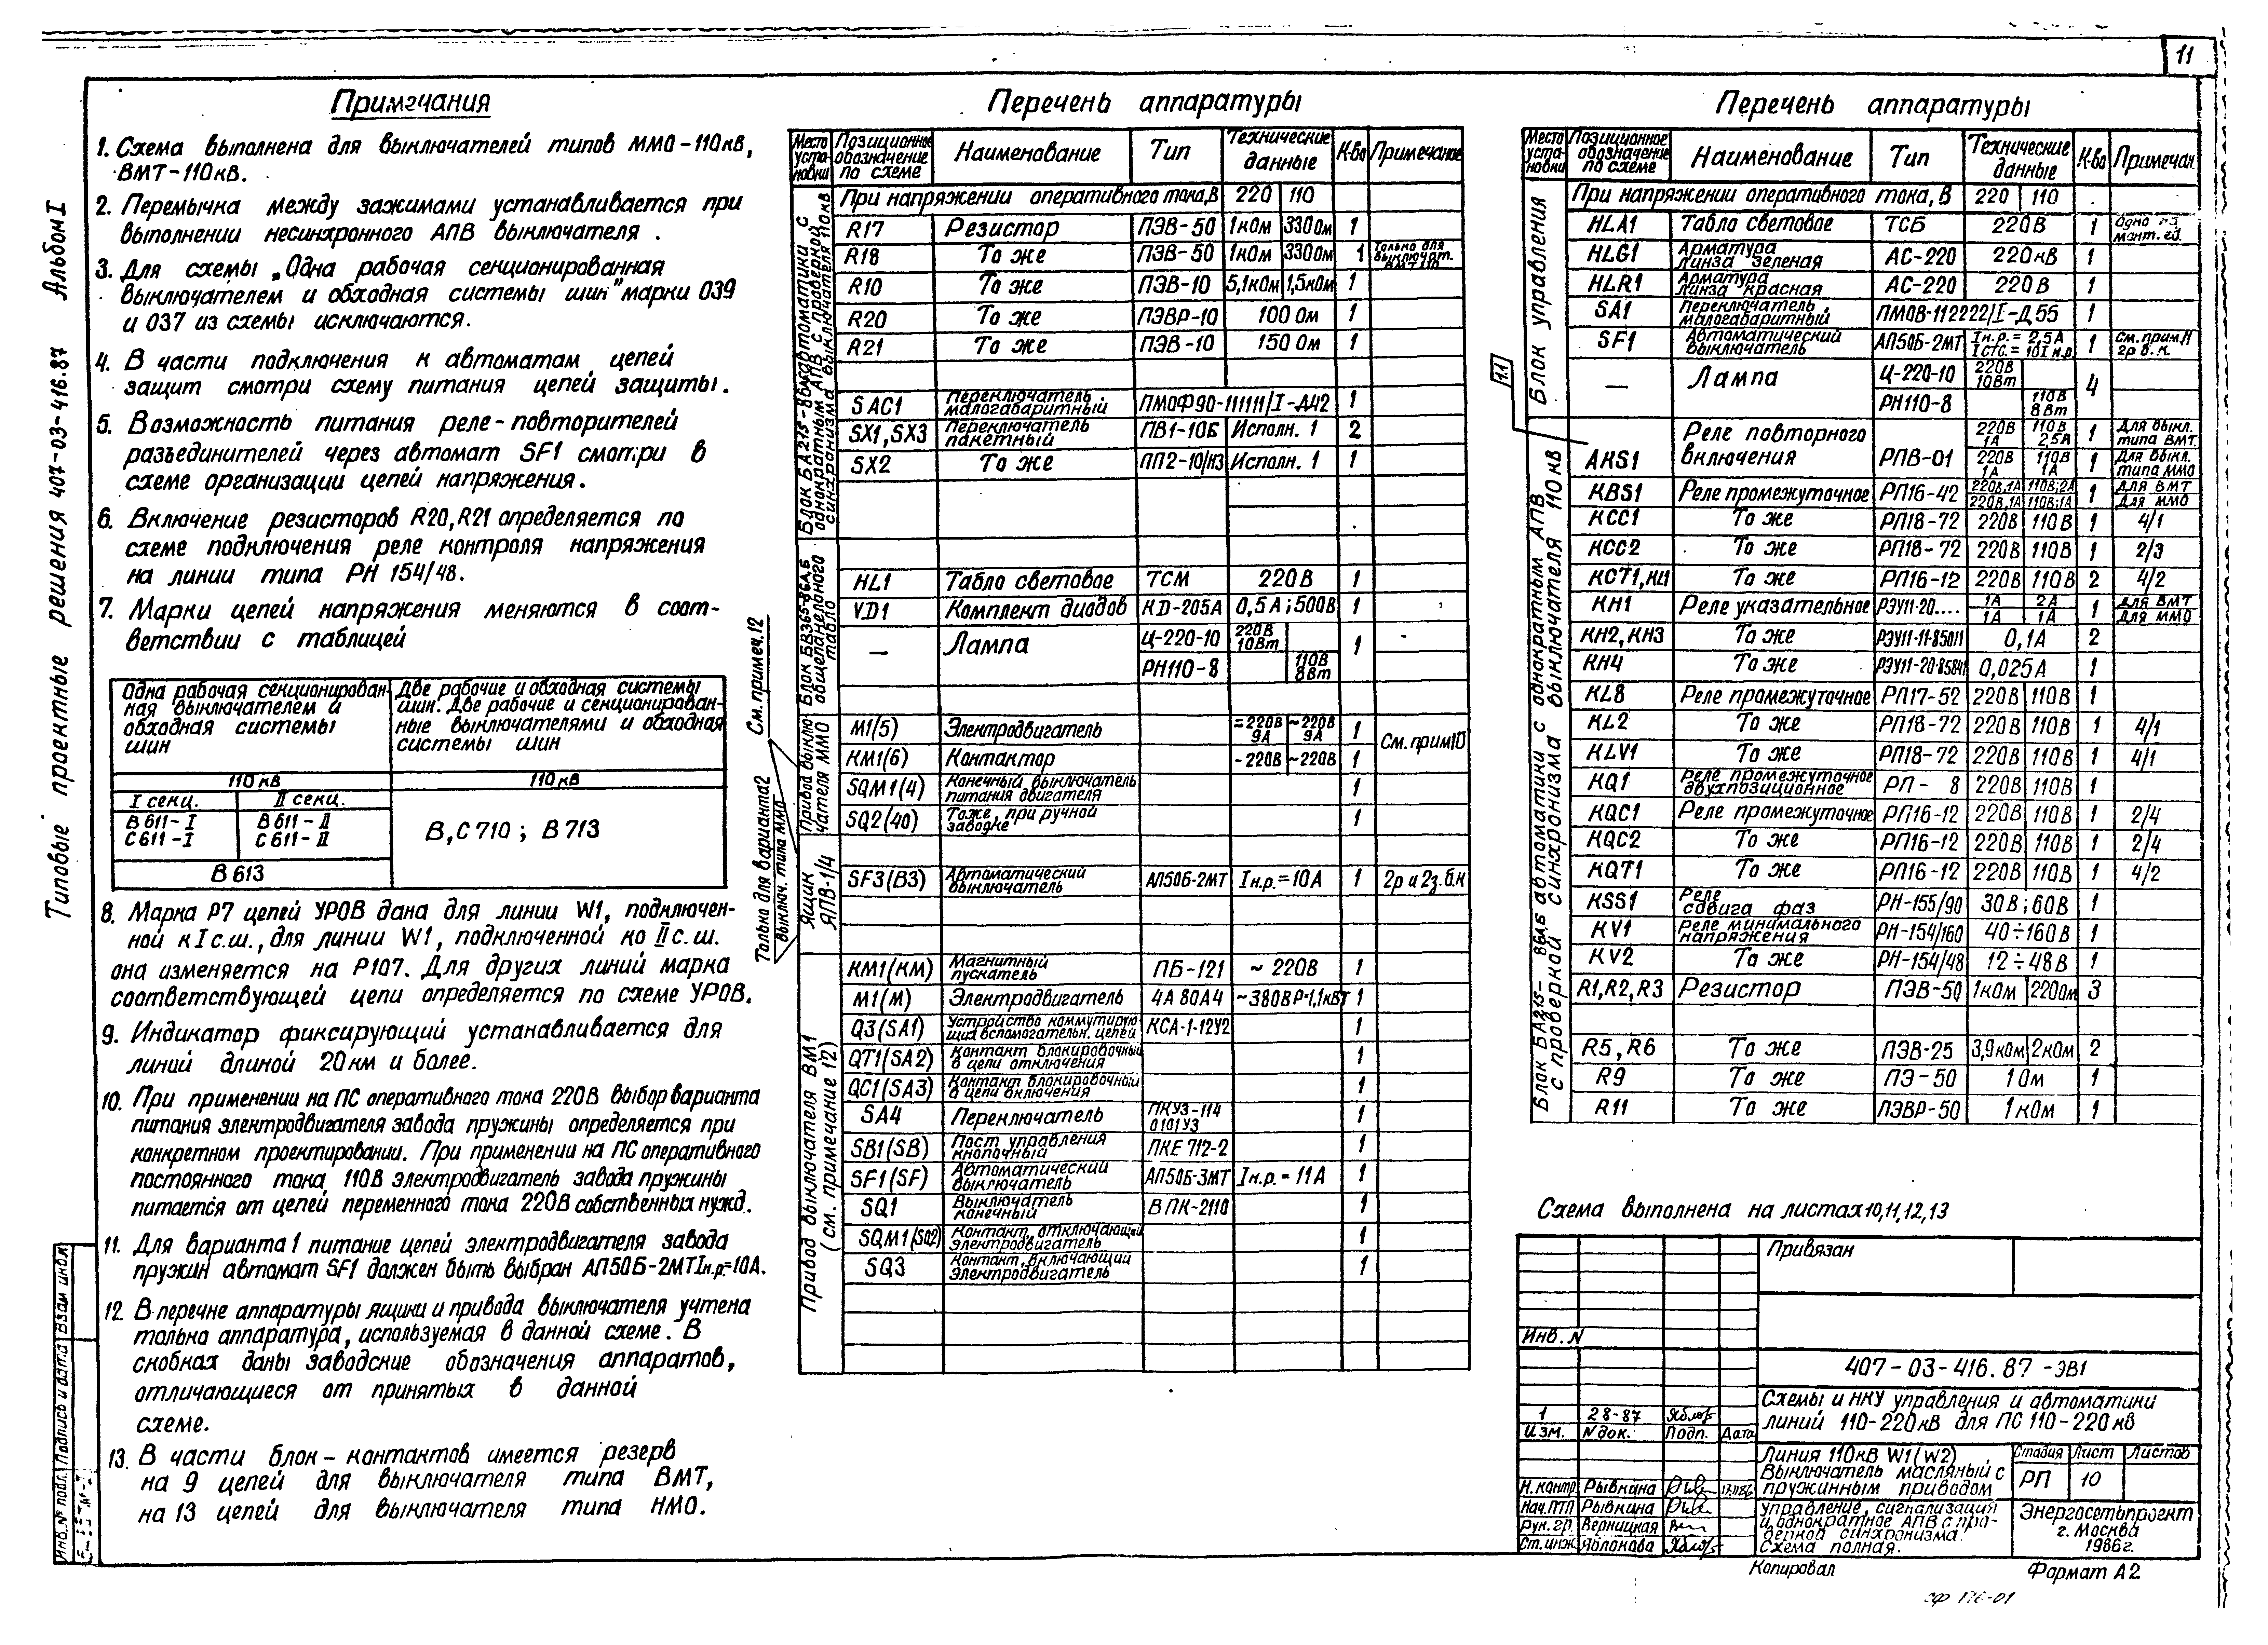 11
Типовые проектные решения 407-03-416.87 Альбом I
Примечания
1. Схема выполнена для выключателей типов ММО-110кВ,
ВМТ-110кВ.
2. Перемычка между зажимами устанавливается при
выполнении несинхронного АПВ выключателя.
3. Для схемы „Одна рабочая секционированная
выключателем и обходная системы шин" марки 039
и 037 из схемы исключаются.
4. В части подключения к автоматам цепей
защит смотри схему питания цепей защиты.
5. Возможность питания реле-повторителей
разъединителей через автомат SF1 смотри в
схеме организации цепей напряжения.
6. Включение резисторов R20, R21 определяется по
схеме подключения реле контроля напряжения
на линии типа РН 154/48.
7. Марки цепей напряжения меняются в соот-
ветствии с таблицей
Одна рабочая секционирован-
ная выключателем и
обходная системы
шин
Две рабочие и обходная системы
шин. Две рабочие и секционирован-
ные выключателями и обходная
системы шин
110кВ 110кВ
I секц. II секц.
В611-I В611-II
С611-I С611-II
В,С710; В713
В613
8. Марка Р7 цепей УРОВ дана для линии W1, подключен-
ной к I с.ш., для линии W1, подключенной ко II с.ш.
она изменяется на Р107. Для других линий марка
соответствующей цепи определяется по схеме УРОВ.
9. Индикатор фиксирующий устанавливается для
линий длиной 20км и более.
10. При применении на ПС оперативного тока 220В выбор варианта
питания электродвигателя завода пружины определяется при
конкретном проектировании. При применении на ПС оперативного
постоянного тока 110В электродвигатель завода пружины
питается от цепей переменного тока 220В собственных нужд.
11. Для варианта 1 питание цепей электродвигателя завода
пружин автомат SF1 должен быть выбран АП50Б-2МТ Iн.р.=10А.
12. В перечне аппаратуры ящики и привода выключателя учтена
только аппаратура, используемая в данной схеме. В
скобках даны заводские обозначения аппаратов,
отличающиеся от принятых в данной
схеме.
13. В части блок-контактов имеется резерв
на 9 цепей для выключателя типа ВМТ,
на 13 цепей для выключателя типа НМО.
Перечень аппаратуры
Место установки Позиционное обозначение по схеме Наименование Тип Технические данные К-во Примечание
При напряжении оперативного тока, В 220 110
Блок БА215-86АБ автоматики с однократным АПВ с проверкой синхронизма выключателя 110кВ
R17 Резистор ПЭВ-50 1кОм 330Ом 1
R18 То же ПЭВ-50 1кОм 330Ом 1 Только для выключат. ВМТ 110
R10 То же ПЭВ-10 5,1кОм 1,5кОм 1
R20 То же ПЭВР-10 100 Ом 1
R21 То же ПЭВ-10 150 Ом 1
SAC1 Переключатель малогабаритный ПМОФ90-111111/I-Д42 1
SX1, SX3 Переключатель пакетный ПВ1-10Б Исполн. 1 2
SX2 То же ПП2-10/Н3 Исполн. 1 1
Блок БВ365-86А,Б общепанельного табло
HL1 Табло световое ТСМ 220В 1
VD1 Комплект диодов КД-205А 0,5А; 500В 1
— Лампа Ц-220-10 220В 10Вт 1
РН110-8 110В 8Вт
См. примеч. 12
Привод выключателя ММО
М1(5) Электродвигатель =220В 9А ~220В 9А 1 См. прим 10
КМ1(6) Контактор -220В ~220В 1
SQM1(4) Конечный выключатель питания двигателя 1
SQ2(40) То же, при ручной заводке 1
Только для варианта 2
выключ. типа ММО
Ящик ЯПВ-1/4
SF3(В3) Автоматический выключатель АП50Б-2МТ Iн.р.=10А 1 2р и 2з.б.к
Привод выключателя ВМ1 (см. примечание 12)
КМ1(КМ) Магнитный пускатель ПБ-121 ~ 220В 1
М1(М) Электродвигатель 4А 80А4 ~380В Р=1,1кВт 1
Q3(SA1) Устройство коммутирующих вспомогательн. цепей КСА-1-12У2 1
QT1(SA2) Контакт блокировочный в цепи отключения 1
QC1(SA3) Контакт блокировочный в цепи включения 1
SA4 Переключатель ПКУ3-114 0101У3 1
SB1(SB) Пост управления кнопочный ПКЕ 712-2 1
SF1(SF) Автоматический выключатель АП50Б-3МТ Iн.р. = 11А 1
SQ1 Выключатель конечный ВПК-2110 1
SQM1(SQ2) Контакт, отключающий электродвигатель 1
SQ3 Контакт, включающий электродвигатель 1
Перечень аппаратуры
Место установки Позиционное обозначение по схеме Наименование Тип Технические данные К-во Примечан.
При напряжении оперативного тока, В 220 110
Блок управления
HLA1 Табло световое ТСБ 220В 1 Одно на монт. ед.
HLG1 Арматура линза зеленая АС-220 220кВ 1
HLR1 Арматура линза красная АС-220 220В 1
SA1 Переключатель малогабаритный ПМОВ-112222/I-Д55 1
SF1 Автоматический выключатель АП50Б-2МТ Iн.р. = 2,5А Iстс. = 10Iн.р 1 См. прим. 11 2р б.к.
— Лампа Ц-220-10 220В 10Вт 4
РН110-8 110В 8Вт
1.1
Блок БА215-86АБ автоматики с однократным АПВ с проверкой синхронизма выключателя 110кВ
AKS1 Реле повторного включения РПВ-01 220В 1А 110В 2,5А 1 Для выкл. типа ВМТ
220В 1А 110В 1А 1 Для выкл. типа ММО
KBS1 Реле промежуточное РП16-42 220В,1А 110В;2А 1 Для ВМТ
220В,1А 110В;1А Для ММО
KCC1 То же РП18-72 220В 110В 1 4/1
KCC2 То же РП18-72 220В 110В 1 2/3
KCT1, KL1 То же РП16-12 220В 110В 2 4/2
KH1 Реле указательное РЭУ11-20.... 1А 2А 1 Для ВМТ
1А 1А Для ММО
KH2, KH3 То же РЭУ11-11-85011 0,1А 2
KH4 То же РЭУ11-20-85841 0,025А 1
KL8 Реле промежуточное РП17-52 220В 110В 1
KL2 То же РП18-72 220В 110В 1 4/1
KLV1 То же РП18-72 220В 110В 1 4/1
KQ1 Реле промежуточное двухпозиционное РП- 8 220В 110В 1
KQC1 Реле промежуточное РП16-12 220В 110В 1 2/4
KQC2 То же РП16-12 220В 110В 1 2/4
KQT1 То же РП16-12 220В 110В 1 4/2
KSS1 Реле сдвига фаз РН-155/90 30В; 60В 1
KV1 Реле минимального напряжения РН-154/160 40÷160В 1
KV2 То же РН-154/48 12÷48В 1
R1, R2, R3 Резистор ПЭВ-50 1кОм 220Ом 3
R5, R6 То же ПЭВ-25 3,9кОм 2кОм 2
R9 То же ПЭ-50 1 Ом 1
R11 То же ПЭВР-50 1 кОм 1
Схема выполнена на листах 10, 11, 12, 13
Привязан
Инв. N
407-03-416.87-ЭВ1
Схемы и НКУ управления и автоматики
линий 110-220кВ для ПС 110-220кВ
1 28-87
Изм. N док. Подп. Дата
Линия 110кВ W1(W2)
Выключатель масляный с
пружинным приводом
Стадия Лист Листов
РП 10
Н.контр. Рывкина
Нач.ПТП Рывкина
Рук.гр. Верницкая
Ст.инж. Яблокова
Управление, сигнализация
и однократное АПВ с про-
веркой синхронизма.
Схема полная.
Энергосетьпроект
г. Москва
1986г.
Копировал
Формат А2
Инв.№ подл. Подпись и дата Взам инв.№